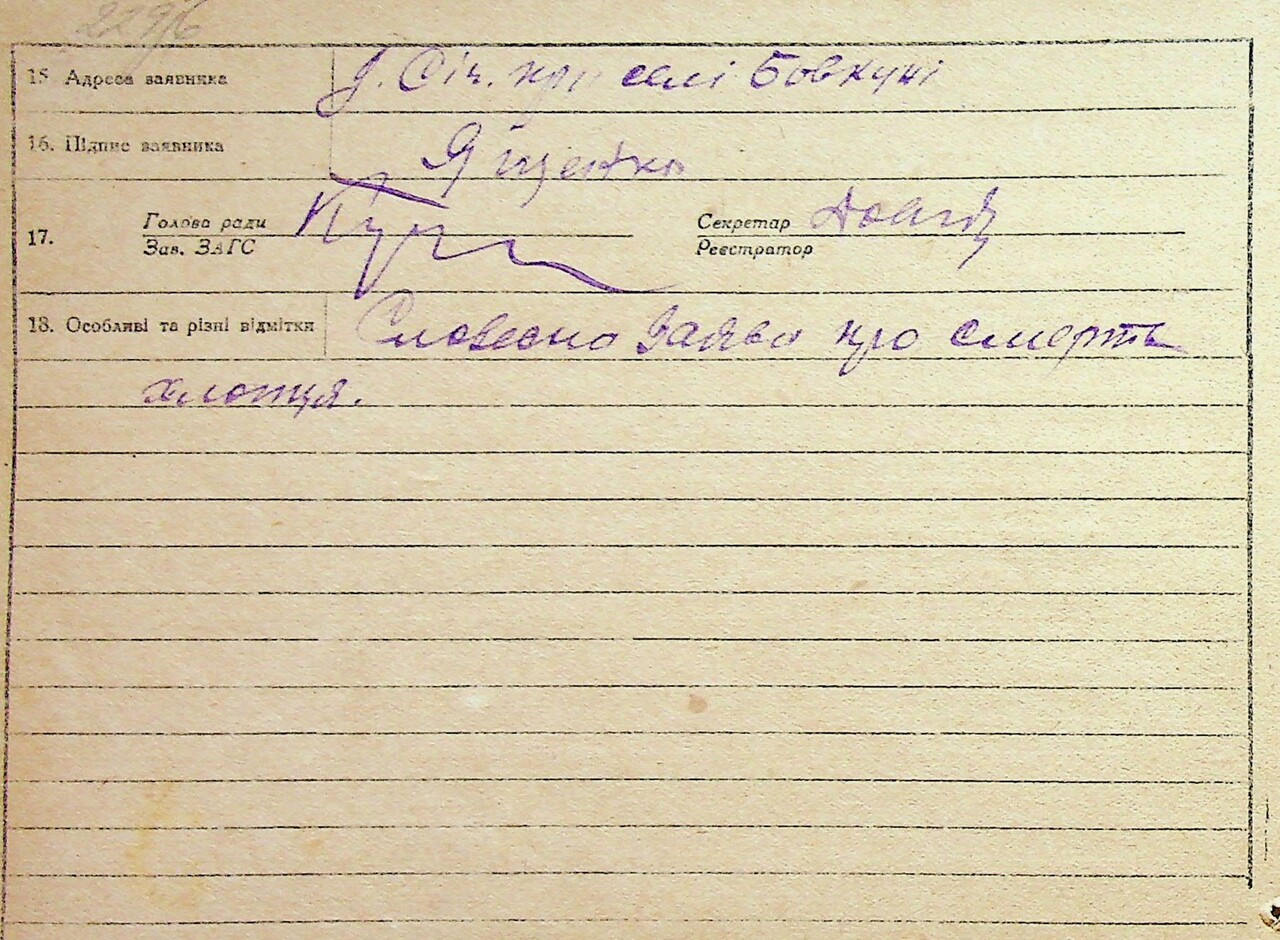 2296
15 Адреса заявника Д. Січ. при селі Бовкуні
16. Підпис заявника Ященко
17. Голова ради Секретар
Зав. ЗАГС Реєстратор
18. Особливі та різні відмітки Словесно Заява про смерть
хлопця.